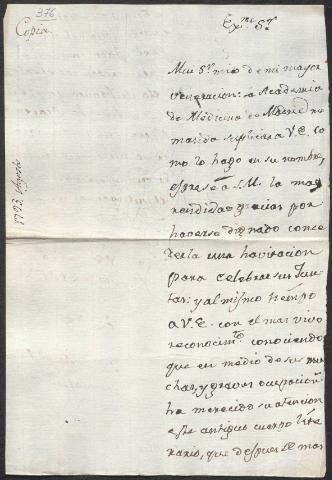 376
Copia
Exmo. Sr.
Mui Sr. mio de mi mayor
veneracion: la Academia
de Medicina de Madrid me
manda suplicar a V.E. co
mo lo hago en su nombre,
esprese a S.M. las mas
rendidas gracias por
haverse dignado conce
derla una havitacion
para celebrar sus Jun
tas: y al mismo tiempo
a V.E. con el mas vivo
reconocimto. conociendo
que en medio de sus mu
chas, y graves ocupacion
ha merecido su atencion
este antiguo cuerpo lite
rario, que despues de mas
1793, Agosto